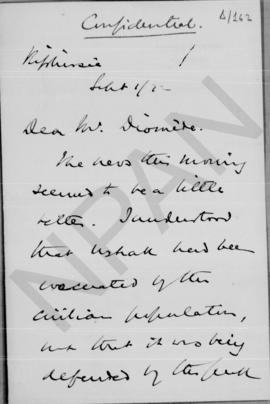 Confidential.
Δ/162
Kiphissia
Sept 1/22
Dear Mr. Diomède.
The news this morning
seemed to be a little
better. I understood
that Ushak had been
evacuated by the
civilian population,
but that it was being
defended by the